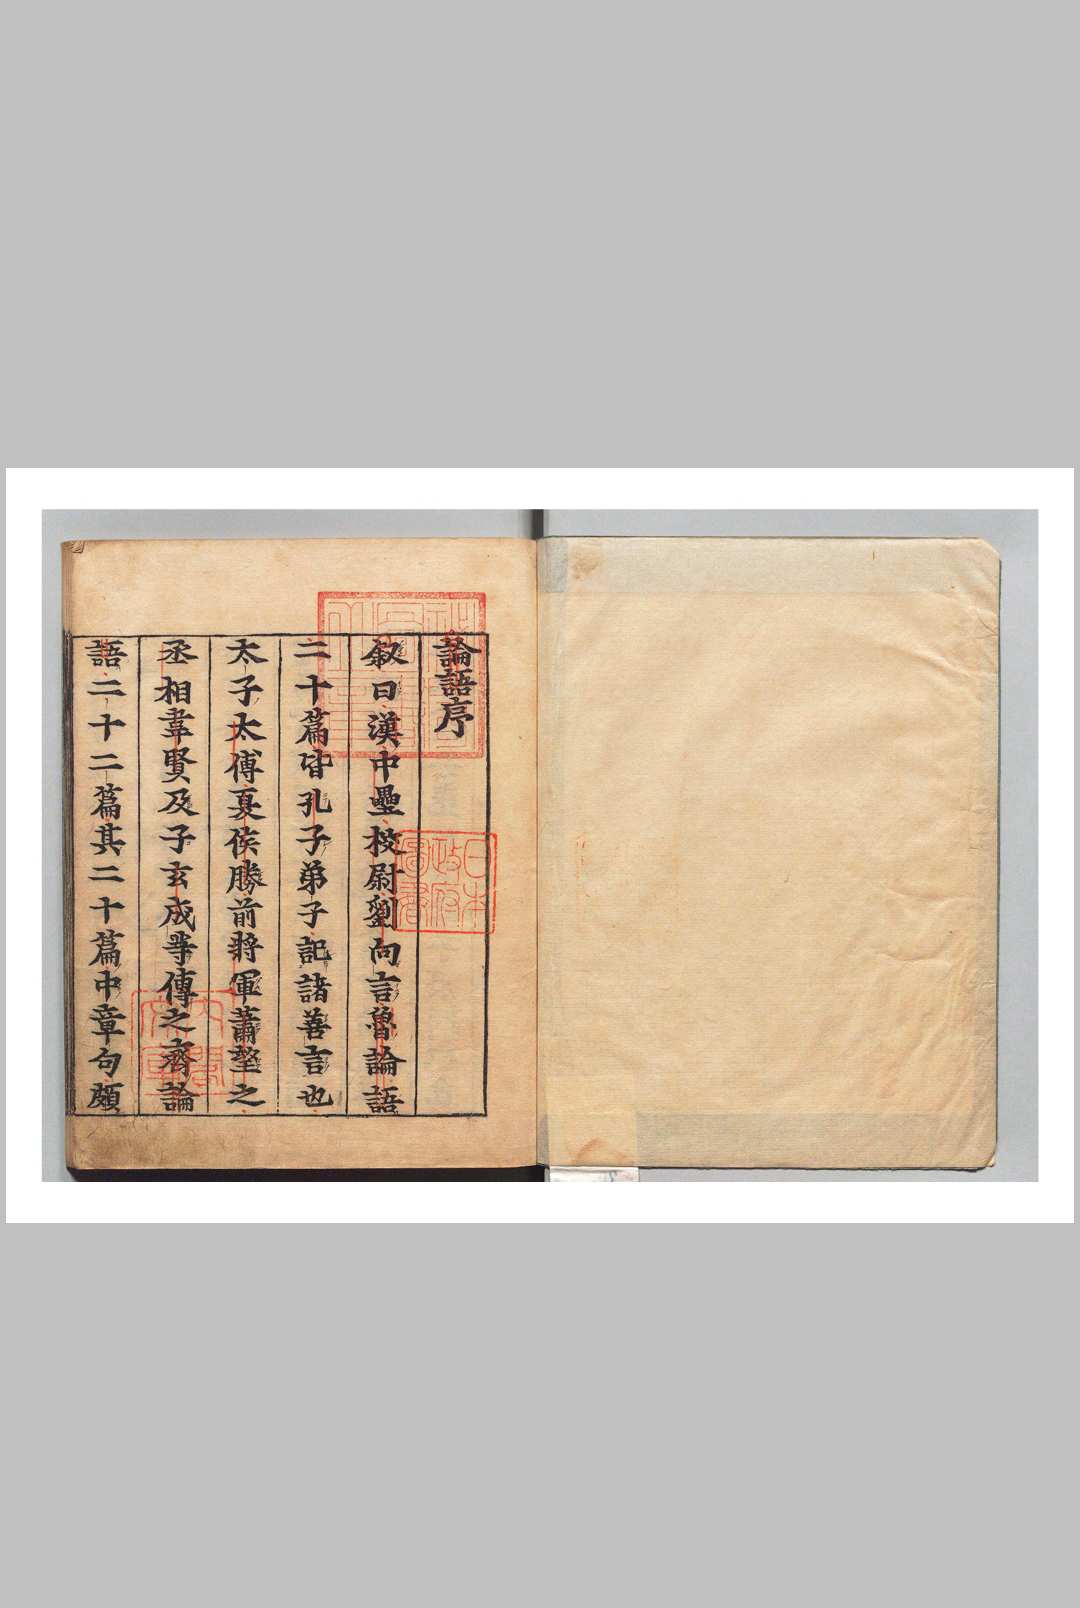 論語序
叙曰漢中壘校尉劉向言魯論語
二十篇皆孔子弟子記諸善言也
太子太傅夏侯勝前將軍蕭望之
丞相韋賢及子玄成等傳之齊論
語二十二篇其二十篇中章句頗
日本
政府
圖書